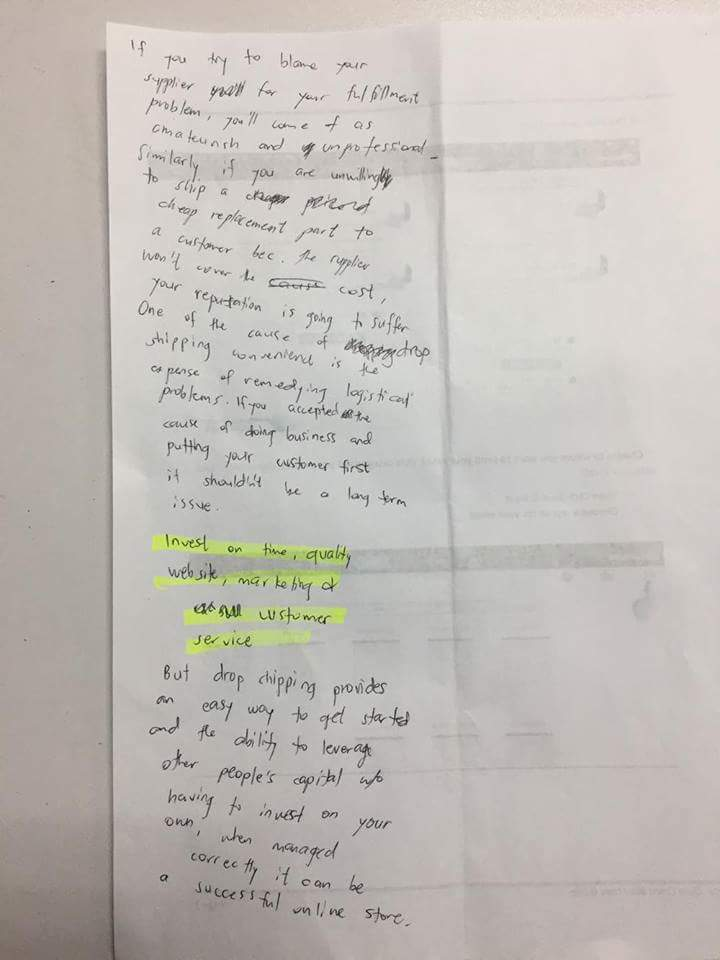 If
you try to blame your
supplier for your fulfillment
problem, you'll come f as
amateurish and unprofessional.
Similarly if you are unwilling
to ship a
cheap replacement part to
a customer bec. the supplier
won't cover the cost,
your reputation is going to suffer
One of the cause of drop
shipping convenience is the
expense of remedying logistical
problems. If you accepted the
cause of doing business and
putting your customer first
it shouldn't be a long term
issue.
Invest on time, quality
website, marketing &
customer
service
But drop chipping provides
an easy way to get started
and the ability to leverage
other people's capital w/o
having to invest on your
own, when managed
correctly it can be
a successful online store.